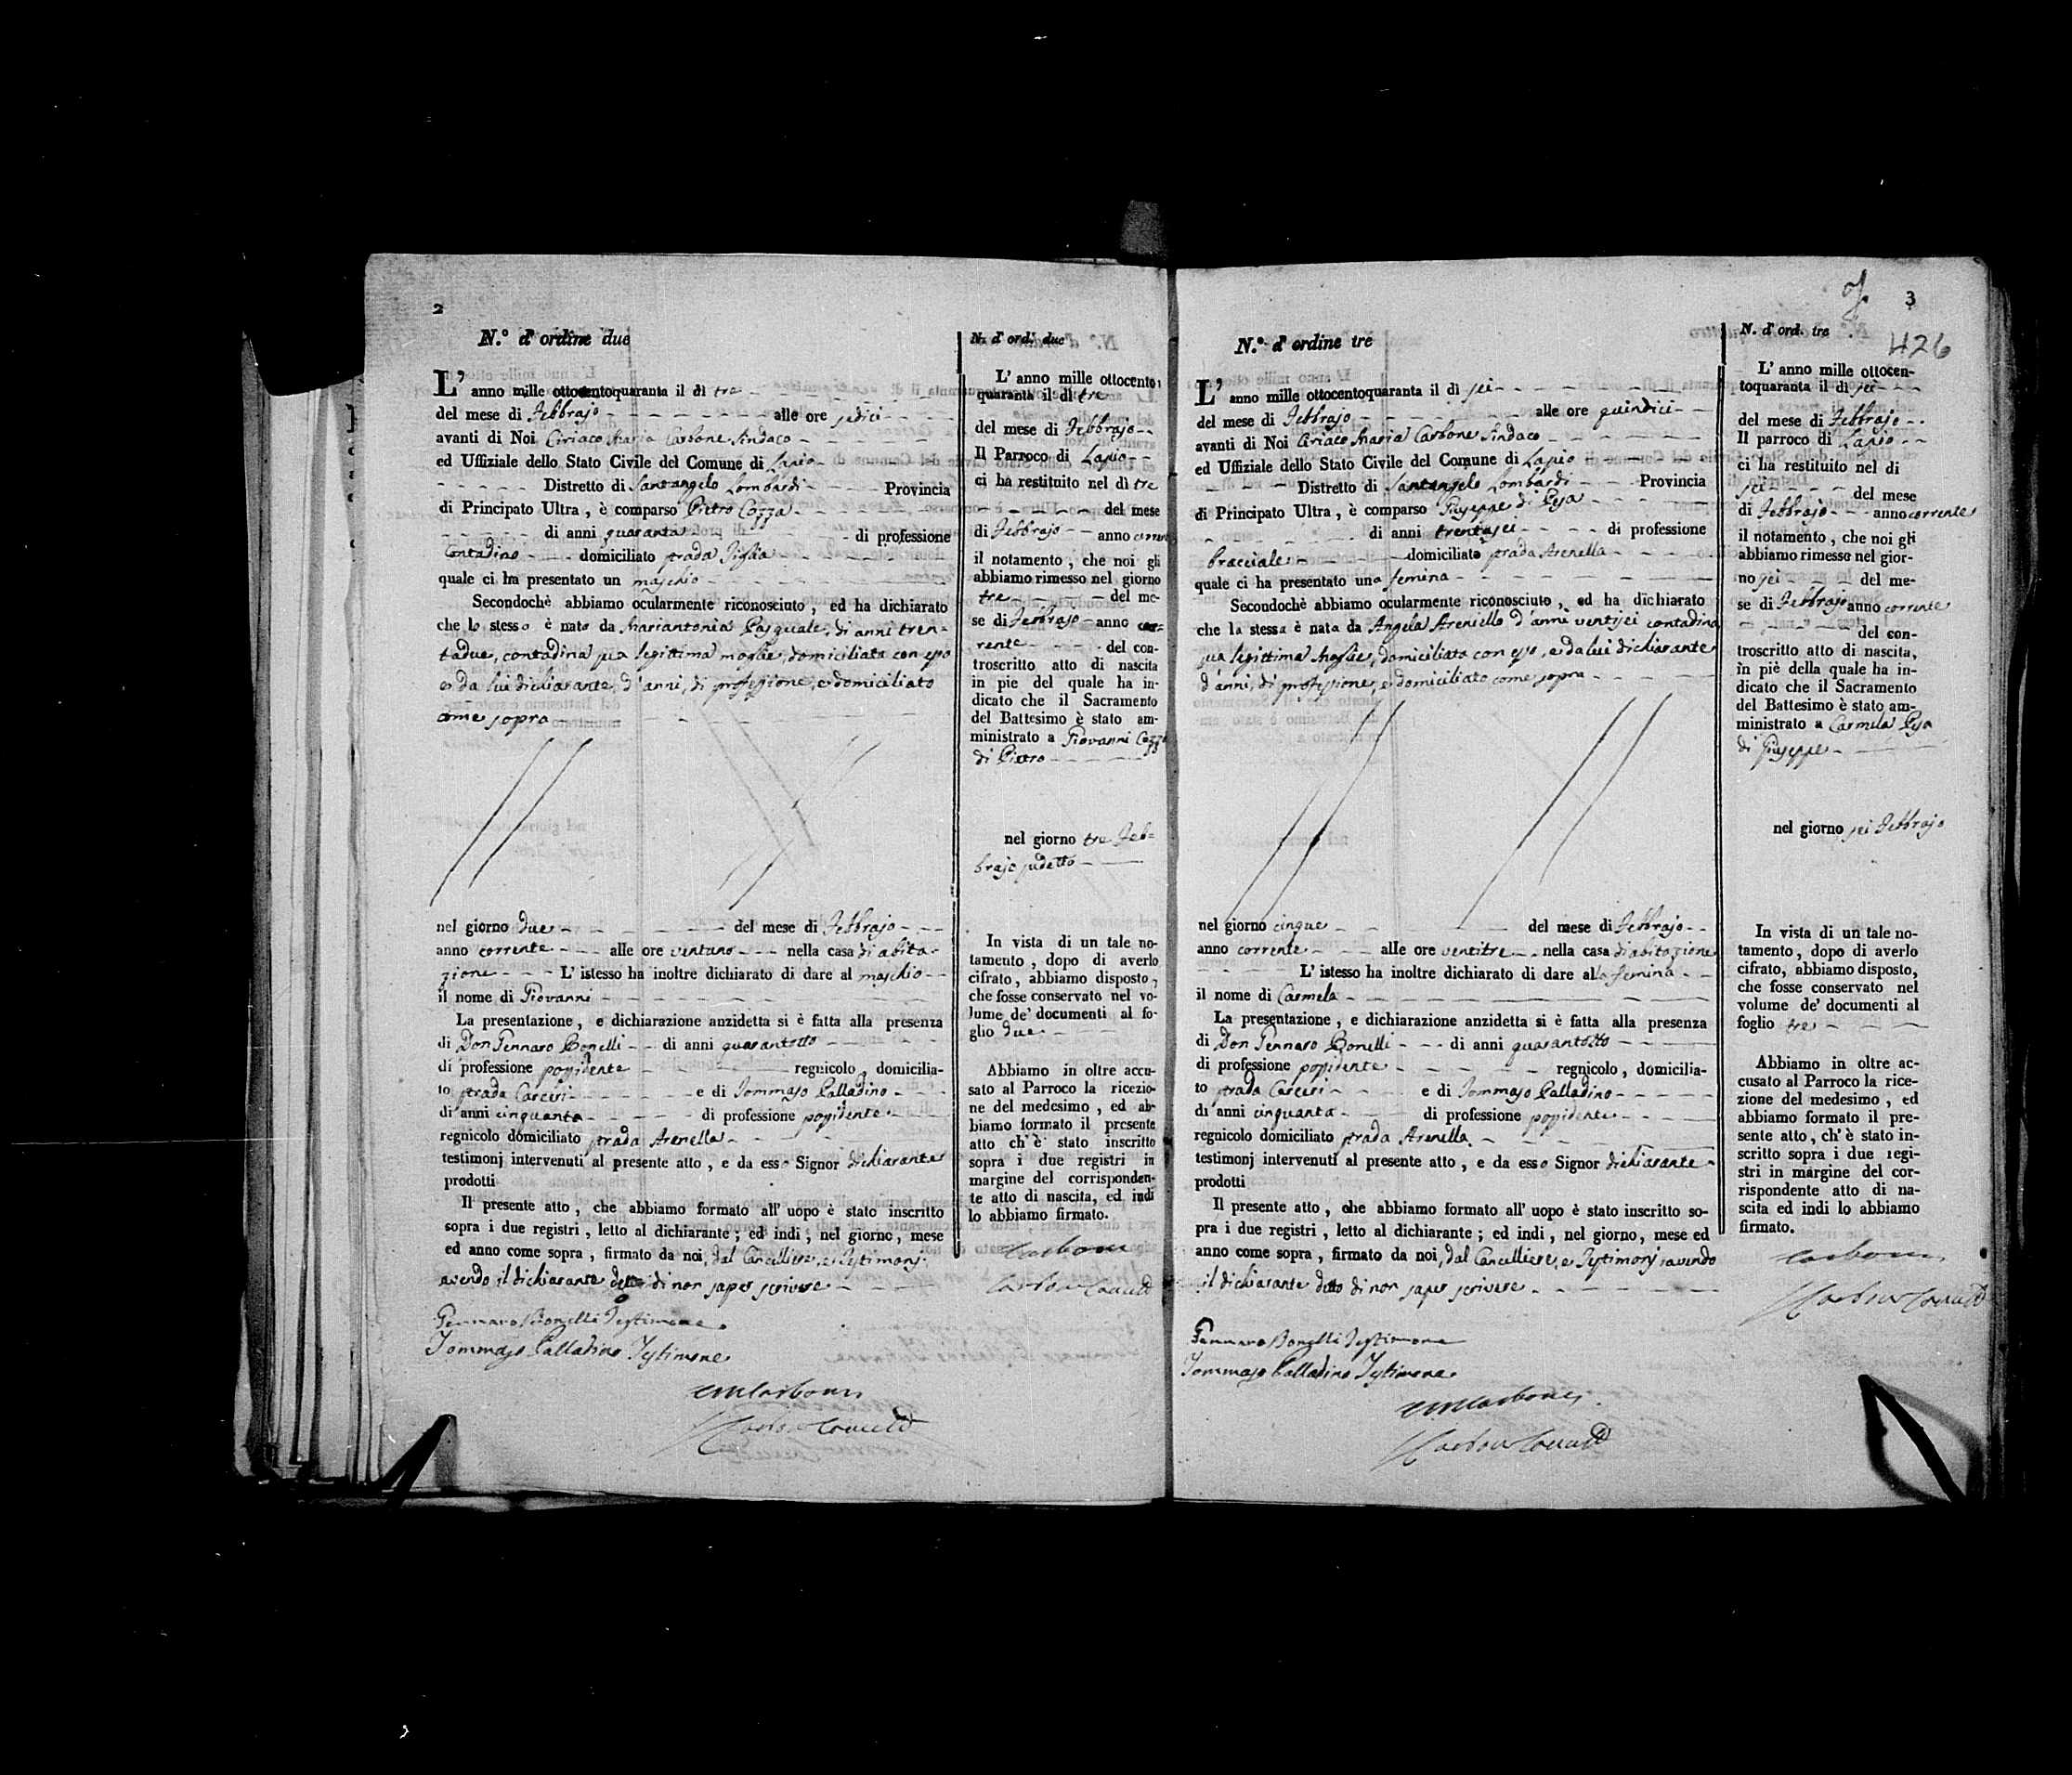 2
N.º d'ordine due
L' anno mille ottocentoquaranta il dì tre
del mese di Febbrajo alle ore sedici
avanti di Noi Ciriaco Maria Carbone Sindaco
ed Uffiziale dello Stato Civile del Comune di Lapio
Distretto di Santangelo Lombardi Provincia
di Principato Ultra, è comparso Pietro Cozza
di anni quaranta di professione
Contadino domiciliato strada
quale ci ha presentato un maschio
Secondochè abbiamo ocularmente riconosciuto, ed ha dichiarato
che lo stesso è nato da Mariantonia Pasquale, di anni tren-
tadue, contadina sua legittima moglie, domiciliata con esso
e da lui dichiarante, d'anni, di professione, e domiciliato
come sopra
nel giorno due del mese di Febbrajo
anno corrente alle ore ventuno nella casa di abita-
zione L' istesso ha inoltre dichiarato di dare al maschio
il nome di Giovanni
La presentazione, e dichiarazione anzidetta si è fatta alla presenza
di Don Gennaro Bonelli di anni quarantotto
di professione possidente regnicolo, domicilia-
to strada Carceri e di Tommaso Palladino
di anni cinquanta di professione possidente
regnicolo domiciliato strada Arenella
testimonj intervenuti al presente atto, e da esso Signor dichiarante
prodotti
Il presente atto, che abbiamo formato all' uopo è stato inscritto
sopra i due registri, letto al dichiarante; ed indi, nel giorno, mese
ed anno come sopra, firmato da noi, dal Cancelliere, e Testimonj
avendo il dichiarante detto di non saper scrivere
Gennaro Bonelli Testimone
Tommaso Palladino Testimone
CM Carbone
Carbone
N. d' ord. due
L' anno mille ottocento
quaranta il dì tre
del mese di Febbrajo
Il Parroco di Lapio
ci ha restituito nel dì tre
del mese
di Febbrajo anno corrente
il notamento, che noi gli
abbiamo rimesso nel giorno
tre del me-
se di Febbrajo anno cor-
rente del con-
troscritto atto di nascita
in pie del quale ha in-
dicato che il Sacramento
del Battesimo è stato am-
ministrato a Giovanni Cozza
di Pietro
nel giorno tre Feb-
brajo sudetto
In vista di un tale no-
tamento, dopo di averlo
cifrato, abbiamo disposto,
che fosse conservato nel vo-
lume de' documenti al fo-
glio due
Abbiamo in oltre accu-
sato al Parroco la ricezio-
ne del medesimo, ed ab-
biamo formato il presente
atto ch' è stato inscritto
sopra i due registri in
margine del corrisponden-
te atto di nascita, ed indi
lo abbiamo firmato.
Carbone
Carbone
3
426
N.º d'ordine tre
L' anno mille ottocentoquaranta il dì sei
del mese di Febbrajo alle ore quindici
avanti di Noi Ciriaco Maria Carbone Sindaco
ed Uffiziale dello Stato Civile del Comune di Lapio
Distretto di Santangelo Lombardi Provincia
di Principato Ultra, è comparso Giuseppe di Pesa
di anni trentasei di professione
bracciale domiciliato strada Arenella
quale ci ha presentato una femina
Secondochè abbiamo ocularmente riconosciuto, ed ha dichiarato
che la stessa è nata da Angela Areniello d'anni ventisei contadina
sua legittima Moglie, domiciliata con esso, e da lui dichiarante
d'anni, di professione, e domiciliato come sopra
nel giorno cinque del mese di Febbrajo
anno corrente alle ore ventitre nella casa di abitazione
L' istesso ha inoltre dichiarato di dare alla femina
il nome di Carmela
La presentazione, e dichiarazione anzidetta si è fatta alla presenza
di Don Gennaro Bonelli di anni quarantotto
di professione possidente regnicolo, domicilia-
to strada Carceri e di Tommaso Palladino
di anni cinquanta di professione possidente
regnicolo domiciliato strada Arenella
testimonj intervenuti al presente atto, e da esso Signor dichiarante
prodotti
Il presente atto, che abbiamo formato all' uopo è stato inscritto so-
pra i due registri, letto al dichiarante; ed indi, nel giorno, mese ed
anno come sopra, firmato da noi, dal Cancelliere, e Testimonj avendo
il dichiarante detto di non saper scrivere
Gennaro Bonelli Testimone
Tommaso Palladino Testimone
CM Carbone
Carbone
N. d' ord. tre
L' anno mille ottocen-
toquaranta il dì sei
del mese di Febbrajo
Il parroco di Lapio
ci ha restituito nel dì
sei del mese
di Febbrajo anno corrente
il notamento, che noi gli
abbiamo rimesso nel gior-
no sei del me-
se di Febbrajo anno corrente
del con-
troscritto atto di nascita,
in piè della quale ha in-
dicato che il Sacramento
del Battesimo è stato am-
ministrato a Carmela Pesa
di Giuseppe
nel giorno sei Febbrajo
In vista di un tale no-
tamento, dopo di averlo
cifrato, abbiamo disposto,
che fosse conservato nel
volume de' documenti al
foglio tre
Abbiamo in oltre ac-
cusato al Parroco la rice-
zione del medesimo, ed
abbiamo formato il pre-
sente atto, ch' è stato in-
scritto sopra i due regi-
stri in margine del cor-
rispondente atto di na-
scita ed indi lo abbiamo
firmato.
Carbone
Carbone